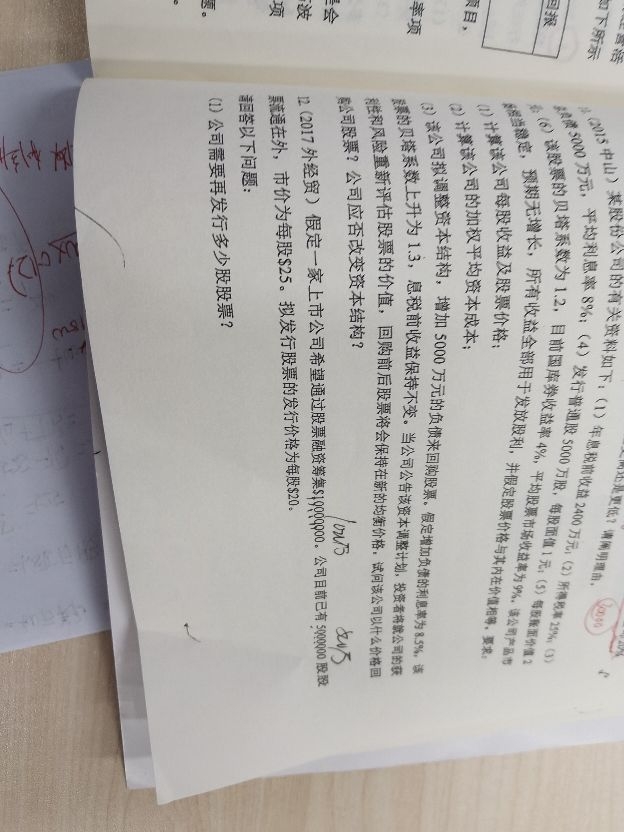 如下所示
回报
项目,
率项
是会
波
项
题。
11.(2015 中山)某股份公司的有关资料如下:(1)年息税前收益 2400 万元;(2)所得税率 25%;(3)
负债 5000 万元,平均利息率 8%;(4)发行普通股 5000 万股,每股面值 1 元;(5)每股账面价值 2
元;(6)该股票的贝塔系数为 1.2,目前国库券收益率 4%,平均股票市场收益率为 9%。该公司产品市
场相当稳定,预期无增长,所有收益全部用于发放股利,并假定股票价格与其内在价值相等。要求:
(1)计算该公司每股收益及股票价格;
(2)计算该公司的加权平均资本成本;
(3)该公司拟调整资本结构,增加 5000 万元的负债来回购股票。假定增加负债的利息率为 8.5%,该
股票的贝塔系数上升为 1.3,息税前收益保持不变。当公司公告该资本调整计划,投资者将就公司的获
利性和风险重新评估股票的价值,回购前后股票将会保持在新的均衡价格。试问该公司以什么价格回
购公司股票?公司应否改变资本结构?
12.(2017 外经贸)假定一家上市公司希望通过股票融资筹集$10000000。公司目前已有 5000000 股股
票流通在外,市价为每股$25。拟发行股票的发行价格为每股$20。
请回答以下问题:
(1)公司需要再发行多少股股票?